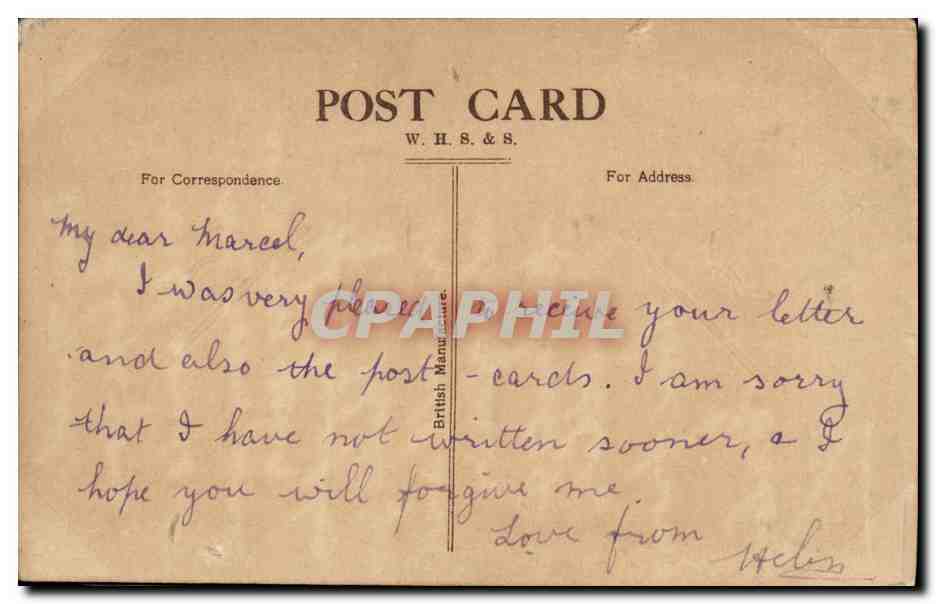 POST CARD
W. H. S. & S.
For Correspondence.
For Address.
British Manufacture.
My dear Marcel,
I was very pleased to receive your letter
and also the post-cards. I am sorry
that I have not written sooner, & I
hope you will forgive me.
Love from
CPAPHIL